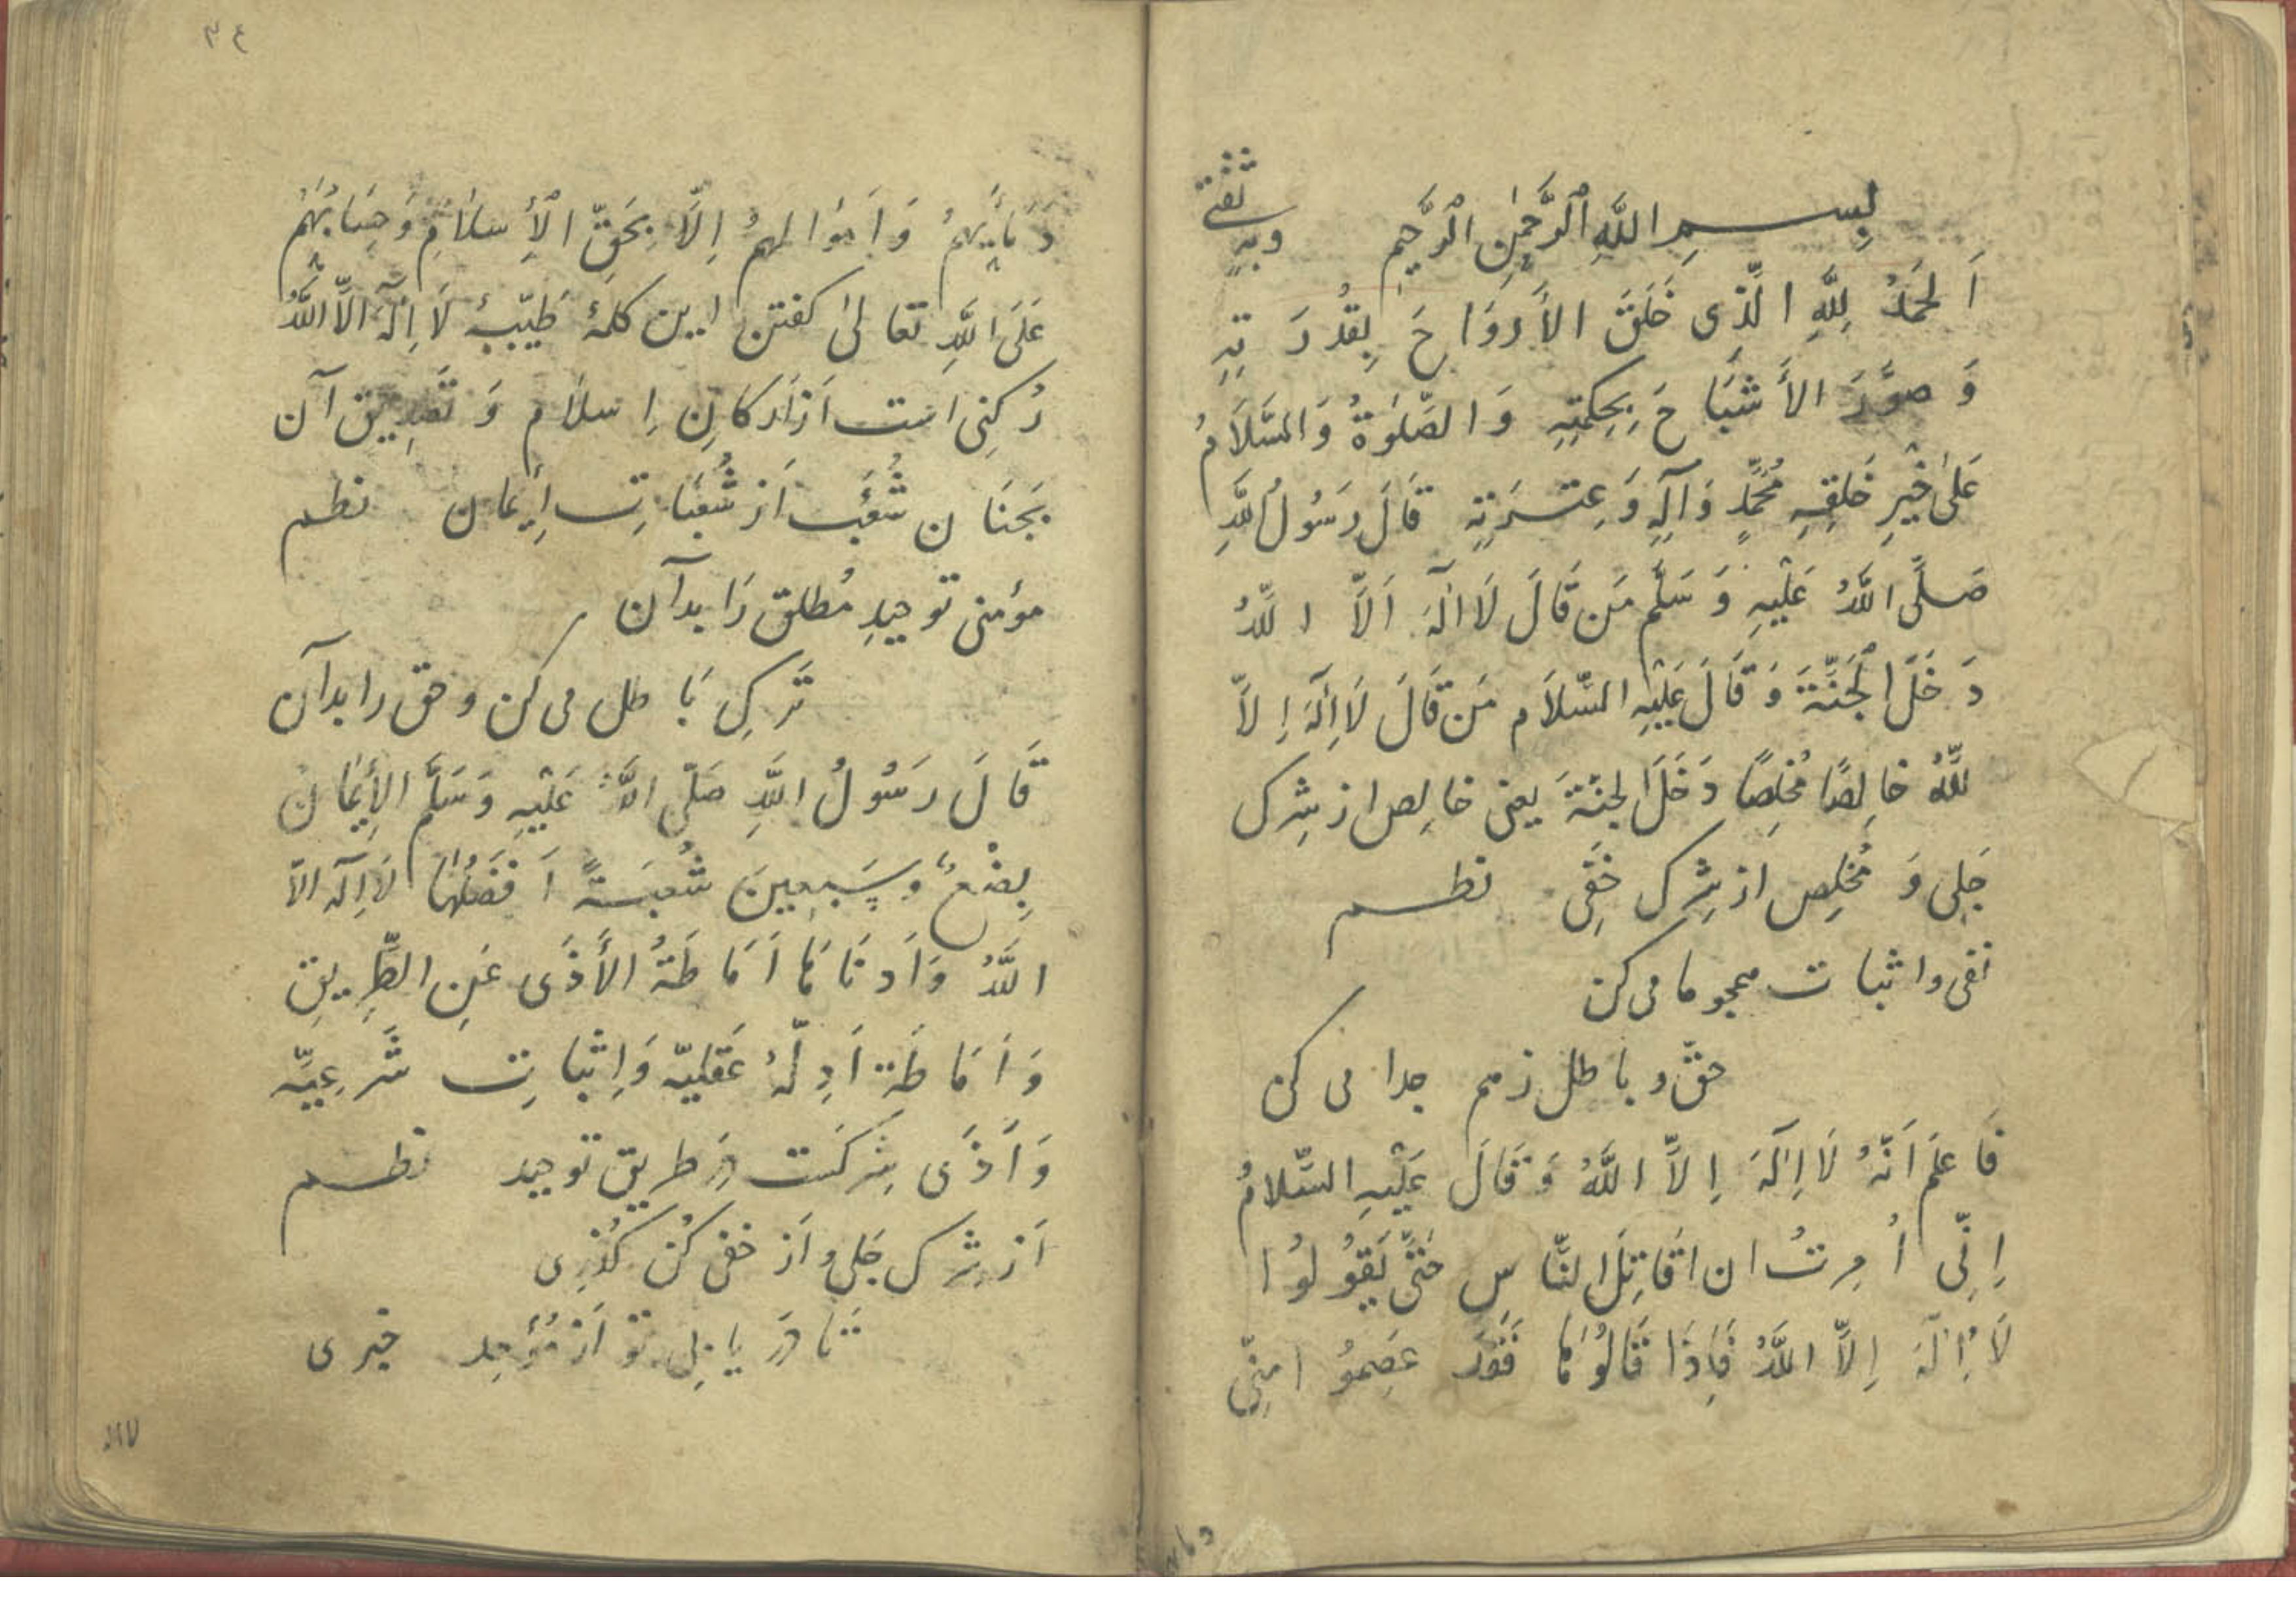 بِسمِ اللَّهِ الرَّحمٰنِ الرَّحيمِ وبه ثقتي
اَلحَمدُ لِلَّهِ الَّذِى خَلَقَ الأَروَاحَ بِقُدرَتِهِ
وَ صوَّرَ الأَشبَاحَ بِحِكمَتِهِ وَ الصَّلوٰةُ وَالسَّلَامُ
عَلىٰ خَيرِ خَلقِهِ مُحَمَّدٍ وَآلِهِ وَ عِترَتِهِ قَالَ رَسُولُ اللَّهِ
صَلَّى اللَّهُ عَلَيهِ وَ سَلَّم مَن قَالَ لَا اِلٰهَ اَلَّا اللَّهُ
دَخَلَ الجَنَّةَ وَ قَالَ عَلَيهِ السَّلَام مَن قَالَ لَا اِلٰهَ اِلَّا
للَّهُ خَالِصًا مُخلِصًا دَخَلَ الجنَّةَ يعنى خالِص از شِرك
جَلِى وَ مُخلِص از شِرك خَفِى نظم
نفى و اثبات همجو ما مى كن
حقّ و باطل زهم جدا مى كن
فَاعلَم اَنَّهُ لَا اِلٰهَ اِلَّا اللَّهُ وَ قَالَ عَلَيهِ السَّلامُ
اِنِّى اُمِرتُ ان اقَاتِلَ النَّاسِ حَتَّى يَقُولُوا
لَا اِلٰهَ اِلَّا اللَّهُ فَاِذَا قَالُوهَا فَقَد عَصِمُوا مِنِّى
دِمَائَهُم وَ اَموَالهُم اِلَّا بِحَقِّ الأِسلَامِ وَ حِسَابُهُم
عَلَى اللَّهِ تعالىٰ كفتن اين كلمهٔ طَيِّبهٔ لَا اِلٰهَ الَّا اللَّهُ
رُكنِى است اَز اَركَانِ اِسلَام وَ تَصدِيق آن
بَجنَان شُعبَه اَز شُعبَاتِ اِيمَان نظم
مؤمنى توحيدِ مُطلق رَا بدآن
تَركِ بَاطل مى كن و حق را بدآن
قَالَ رَسُولُ اللَّهِ صَلّى اللَّهُ عَلَيهِ وَسَلَّم الأِيمَان
بِضْعٌ وَسَبعِينَ شُعبَةً اَفضَلُهَا لَا اِلٰه الاّ
اللَّهُ وَ اَدنَاهَا اَمَاطَةُ الأَذَى عَنِ الطَّرِيقِ
وَ اَمَاطَة اَدِلّهٔ عَقليّه وَ اِثباتِ شَرعِيّه
وَ اَذَى شِركَت دَر طريق توحيد نظم
اَز شِرك جَلى و اَز خفى كُن كُذَرِى
تَا دَر يا بى تو اَز مُوَحِد خبرى